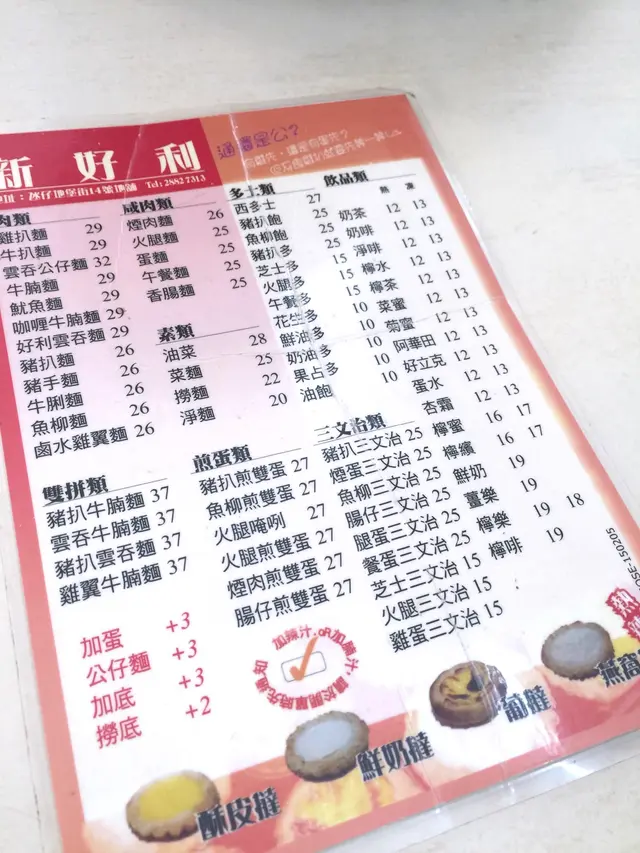 新好利
地址：氹仔地堡街14號地舖 Tel: 2882 7313
肉類
雞扒麵 29
牛扒麵 29
雲吞公仔麵 32
牛腩麵 29
魷魚麵 29
咖喱牛腩麵 29
好利雲吞麵 29
豬扒麵 26
豬手麵 26
牛脷麵 26
魚柳麵 26
鹵水雞翼麵 26
咸肉類
煙肉麵 26
火腿麵 25
蛋麵 25
午餐麵 25
香腸麵 25
素類
油菜 28
菜麵 25
撈麵 22
淨麵 20
多士類
西多士 27
豬扒飽 25
魚柳飽 25
豬扒多 25
芝士多 15
火腿多 15
午餐多 15
花生多 10
鮮油多 10
奶油多 10
果占多 10
油飽 10
飲品類
熱 凍
奶茶 12 13
奶啡 12 13
淨啡 12 13
檸水 12 13
檸茶 12 13
菜蜜 12 13
菊蜜 12 13
阿華田 12 13
好立克 12 13
蛋水 12 13
杏霜 12 13
檸蜜 16 17
檸繽 16 17
鮮奶 19
薑樂 19
檸樂 19 18
檸啡 19
雙拼類
豬扒牛腩麵 37
雲吞牛腩麵 37
豬扒雲吞麵 37
雞翼牛腩麵 37
煎蛋類
豬扒煎雙蛋 27
魚柳煎雙蛋 27
火腿唵咧 27
火腿煎雙蛋 27
煙肉煎雙蛋 27
腸仔煎雙蛋 27
三文治類
豬扒三文治 25
煙蛋三文治 25
魚柳三文治 25
腸仔三文治 25
腿蛋三文治 25
餐蛋三文治 25
芝士三文治 15
火腿三文治 15
雞蛋三文治 15
加蛋 +3
公仔麵 +3
加底 +3
撈底 +2
酥皮撻
鮮奶撻
葡撻
燕窩